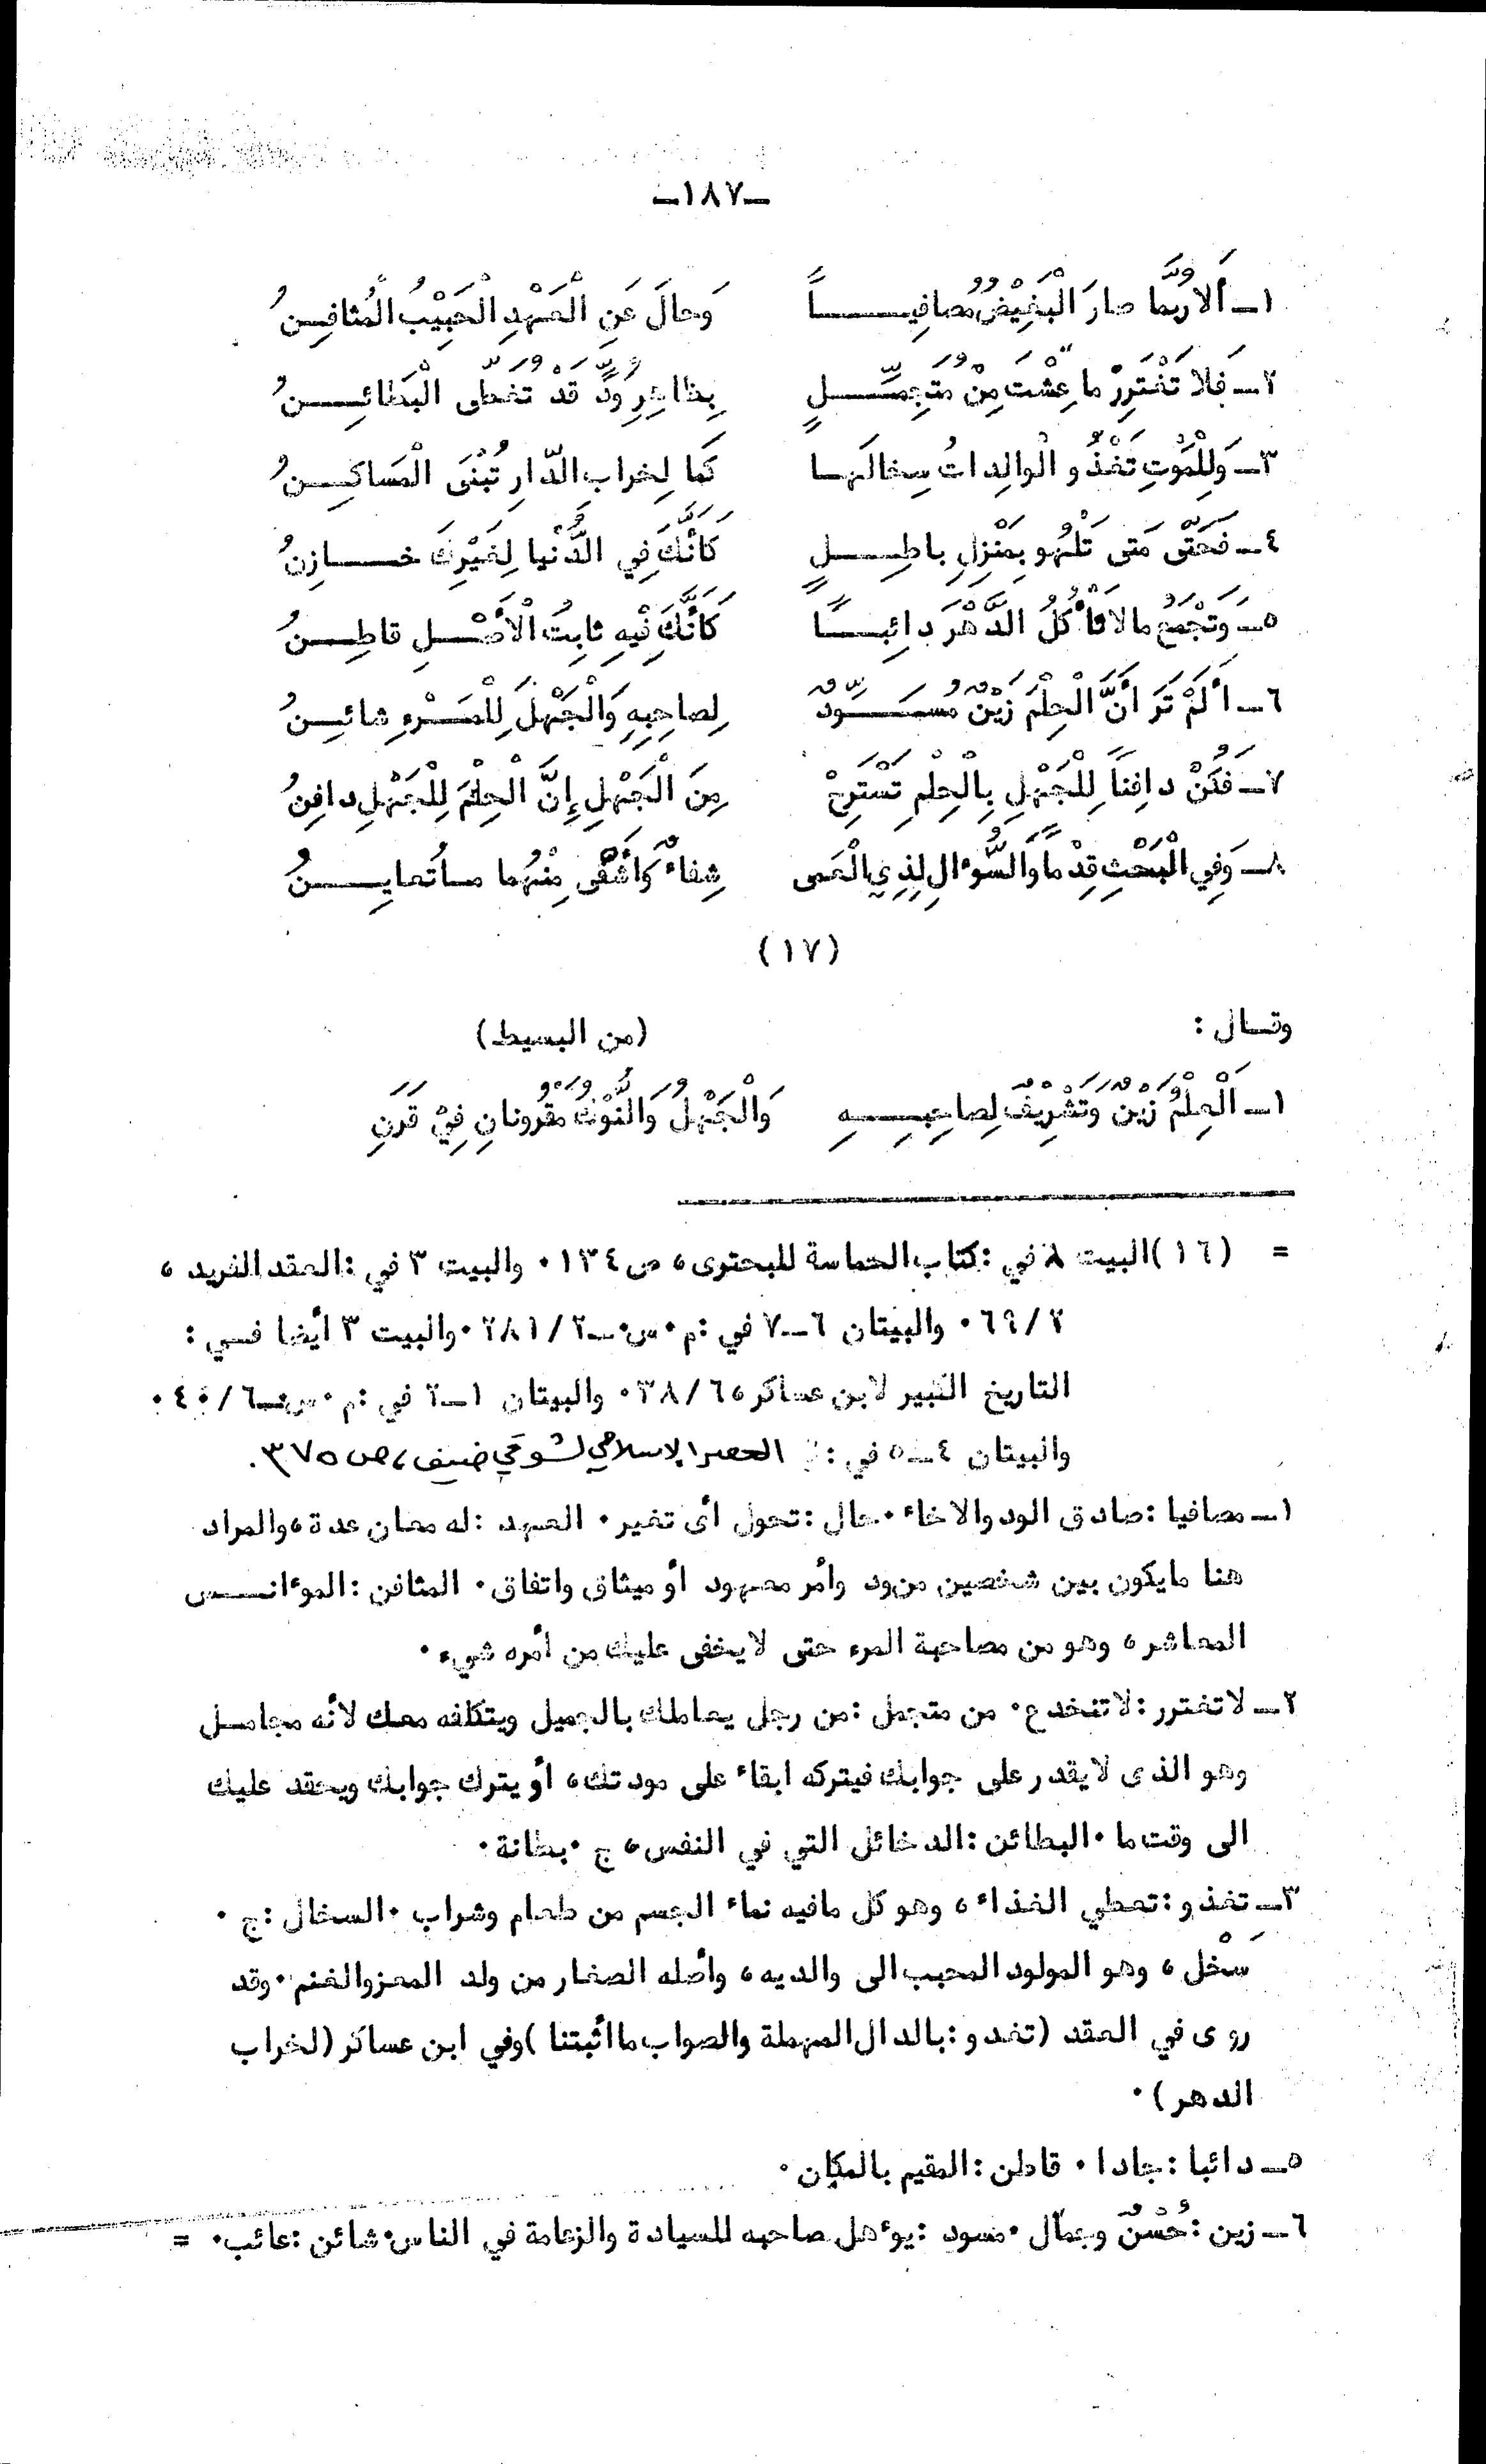 ــ١٨٧ــ
١ـ أَلَا رُبَّما صارَ الْبَغِيْضُ مُصافِيـــــاً وَحالَ عَنِ الْعَهْدِ الْحَبِيْبُ الْمُثافِـنُ
٢ـ فَلا تَغْتَرِرْ ما عِشْتَ مِنْ مُتَجِمِّـــلٍ بِظاهِرِ وُدٍّ قَدْ تُغَطَّى الْبَطائِــــنُ
٣ـ وَلِلْمَوْتِ تَغْذُو الْوالِداتُ سِخالَهـا كَما لِخرابِ الدّارِ تُبْنَى الْمَساكِـنُ
٤ـ فَحَتّى مَتى تَلْهُو بِمَنْزِلِ باطِـــلٍ كَأَنَّكَ فِي الدُّنْيا لِغَيْرِكَ خــازِنُ
٥ـ وَتَجْمَعُ مالا تَأْكُلُ الدَّهْرَ دائِبـــاً كَأَنَّكَ فِيْهِ ثابِتُ الْأَصْـلِ قاطِـنُ
٦ـ أَلَمْ تَرَ أَنَّ الْحِلْمَ زَيْنٌ مُسَـــوِّدٌ لِصاحِبِهِ وَالْجَهْلَ لِلْمَـرْءِ شائـنُ
٧ـ فَكُنْ دافِناً لِلْجَهْلِ بِالْحِلْمِ تَسْتَرِحْ مِنَ الْجَهْلِ إِنَّ الْحِلْمَ لِلْجَهْلِ دافِنُ
٨ـ وَفِي الْبَحْثِ قِدْماً وَالسُّؤالِ لِذِي الْعَمى شِفاءٌ وَأَشْفَى مِنْهُما مـا تُعايِـــنُ
(١٧)
وقـال : (من البسيط)
١ـ اَلْحِلْمُ زَيْنٌ وَتَشْرِيْفٌ لِصاحِبِـــهِ وَالْجَهْلُ وَالنُّوْكُ مَقْرُونانِ فِيْ قَرَنِ
= (١٦) البيت ٨ في : كتاب الحماسة للبحترى، ص ١٣٤. والبيت ٣ في : العقد الفريد ،
٦٩/٢. والبيتان ٦ــ٧ في : م.س.ــ٢٨١/٢. والبيت ٣ أيضا فـي :
التاريخ الكبير لابن عساكر، ٣٨/٦. والبيتان ١ــ٢ في : م.س.ــ٤٠/٦.
والبيتان ٤ــ٥ في : العصر الإسلامي لشوقي ضيف، ص ٣٧٥.
١ـ مصافيا : صادق الود والاخاء. حال : تحول أى تغير. العهد : له معان عدة، والمراد
هنا مايكون بين شخصين من ود وأمر معهود أو ميثاق واتفاق. المثافن : المؤانـــس
المعاشر، وهو من مصاحبة المرء حتى لايخفى عليك من أمره شيء.
٢ـ لاتغترر : لاتنخدع. من متجمل : من رجل يعاملك بالجميل ويتكلفه معك لأنه مجامـل
وهو الذى لايقدر على جوابك فيتركه ابقاء على مودتك، أو يترك جوابك ويحقد عليك
الى وقت ما. البطائن : الدخائل التي في النفس، ج. بطانة.
٣ـ تغذو : تعطي الغذاء، وهو كل مافيه نماء الجسم من طعام وشراب. السخال : ج.
سَخْل، وهو المولود المحبب الى والديه، وأصله الصغار من ولد المعز والغنم. وقد
روى في العقد (تغدو : بالدال المهملة والصواب ما أثبتنا) وفي ابن عساكر (لخراب
الدهر).
٥ـ دائبا : جادا. قاطن : المقيم بالمكان.
٦ـ زين : حُسْنٌ وجمال. مسود : يؤهل صاحبه للسيادة والزعامة في الناس. شائن : عائب. =